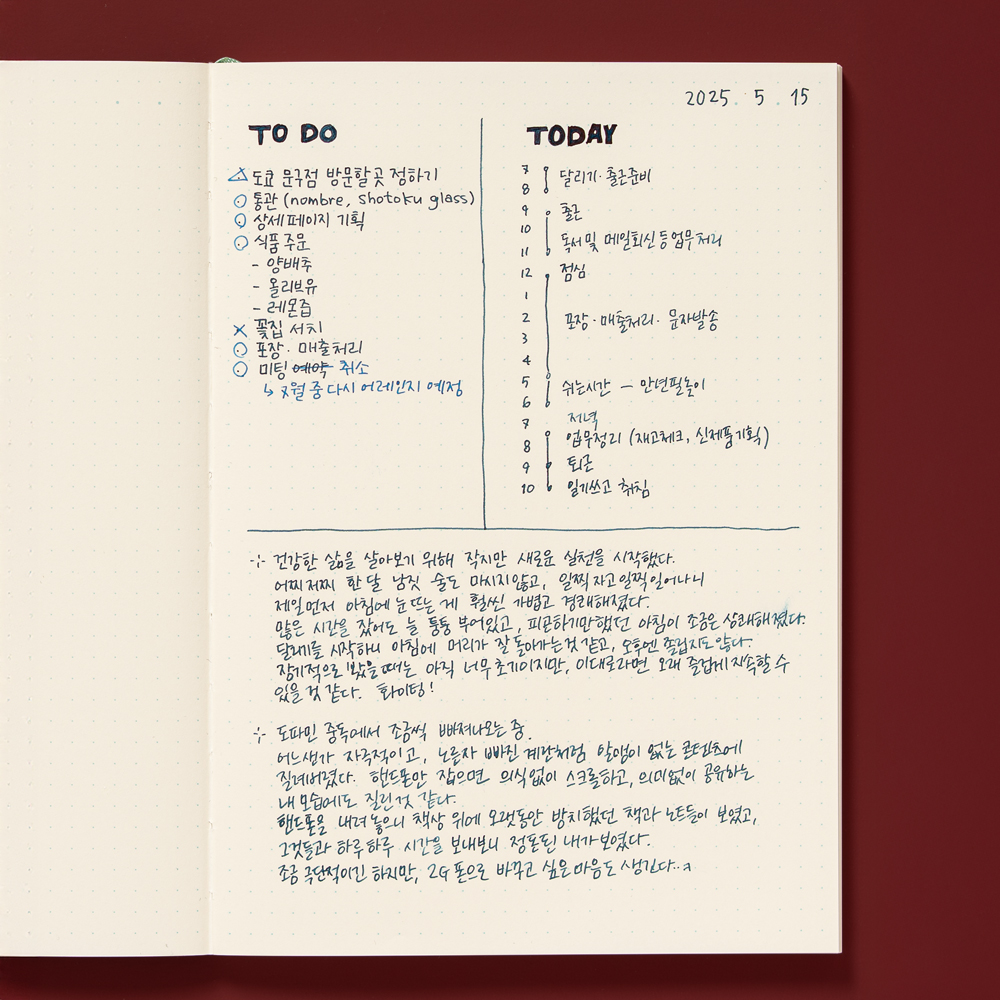 2025. 5. 15
TO DO
△ 도쿄 문구점 방문할 곳 정하기
○ 통관 (nombre, shotoku glass)
○ 상세페이지 기획
○ 식품 주문
- 양배추
- 올리브유
- 레몬즙
× 꽃집 서치
○ 포장 · 매출처리
○ 미팅 예약 취소
↳ 7월 중 다시 어레인지 예정
TODAY
7
8 달리기 · 출근준비
9 출근
10
11 독서 및 메일회신 등 업무처리
12 점심
1
2 포장 · 매출처리 · 문자발송
3
4
5 쉬는시간 — 만년필놀이
6
7 저녁
8 업무정리 (재고체크, 신제품기획)
9 퇴근
10 일기쓰고 취침
건강한 삶을 살아보기 위해 작지만 새로운 실천을 시작했다.
어찌저찌 한 달 남짓 술도 마시지 않고, 일찍 자고 일찍 일어나니
제일 먼저 아침에 눈 뜨는 게 훨씬 가볍고 경쾌해졌다.
많은 시간을 잤어도 늘 퉁퉁 부어있고, 피곤하기만 했던 아침이 조금은 상쾌해졌다.
달리기를 시작하니 아침에 머리가 잘 돌아가는 것 같고, 오후엔 졸립지도 않다.
장기적으로 봤을 때는 아직 너무 초기이지만, 이대로라면 오래 즐겁게 지속할 수
있을 것 같다. 화이팅!
도파민 중독에서 조금씩 빠져나오는 중.
어느샌가 자극적이고, 노른자 빠진 계란처럼 알맹이 없는 콘텐츠에
질려버렸다. 핸드폰만 잡으면 의식없이 스크롤하고, 의미없이 공유하는
내 모습에도 질린 것 같다.
핸드폰을 내려놓으니 책상 위에 오랫동안 방치했던 책과 노트들이 보였고,
그것들과 하루하루 시간을 보내보니 정돈된 내가 보였다.
조금 극단적이긴 하지만, 2G폰으로 바꾸고 싶은 마음도 생긴다..ㅋ